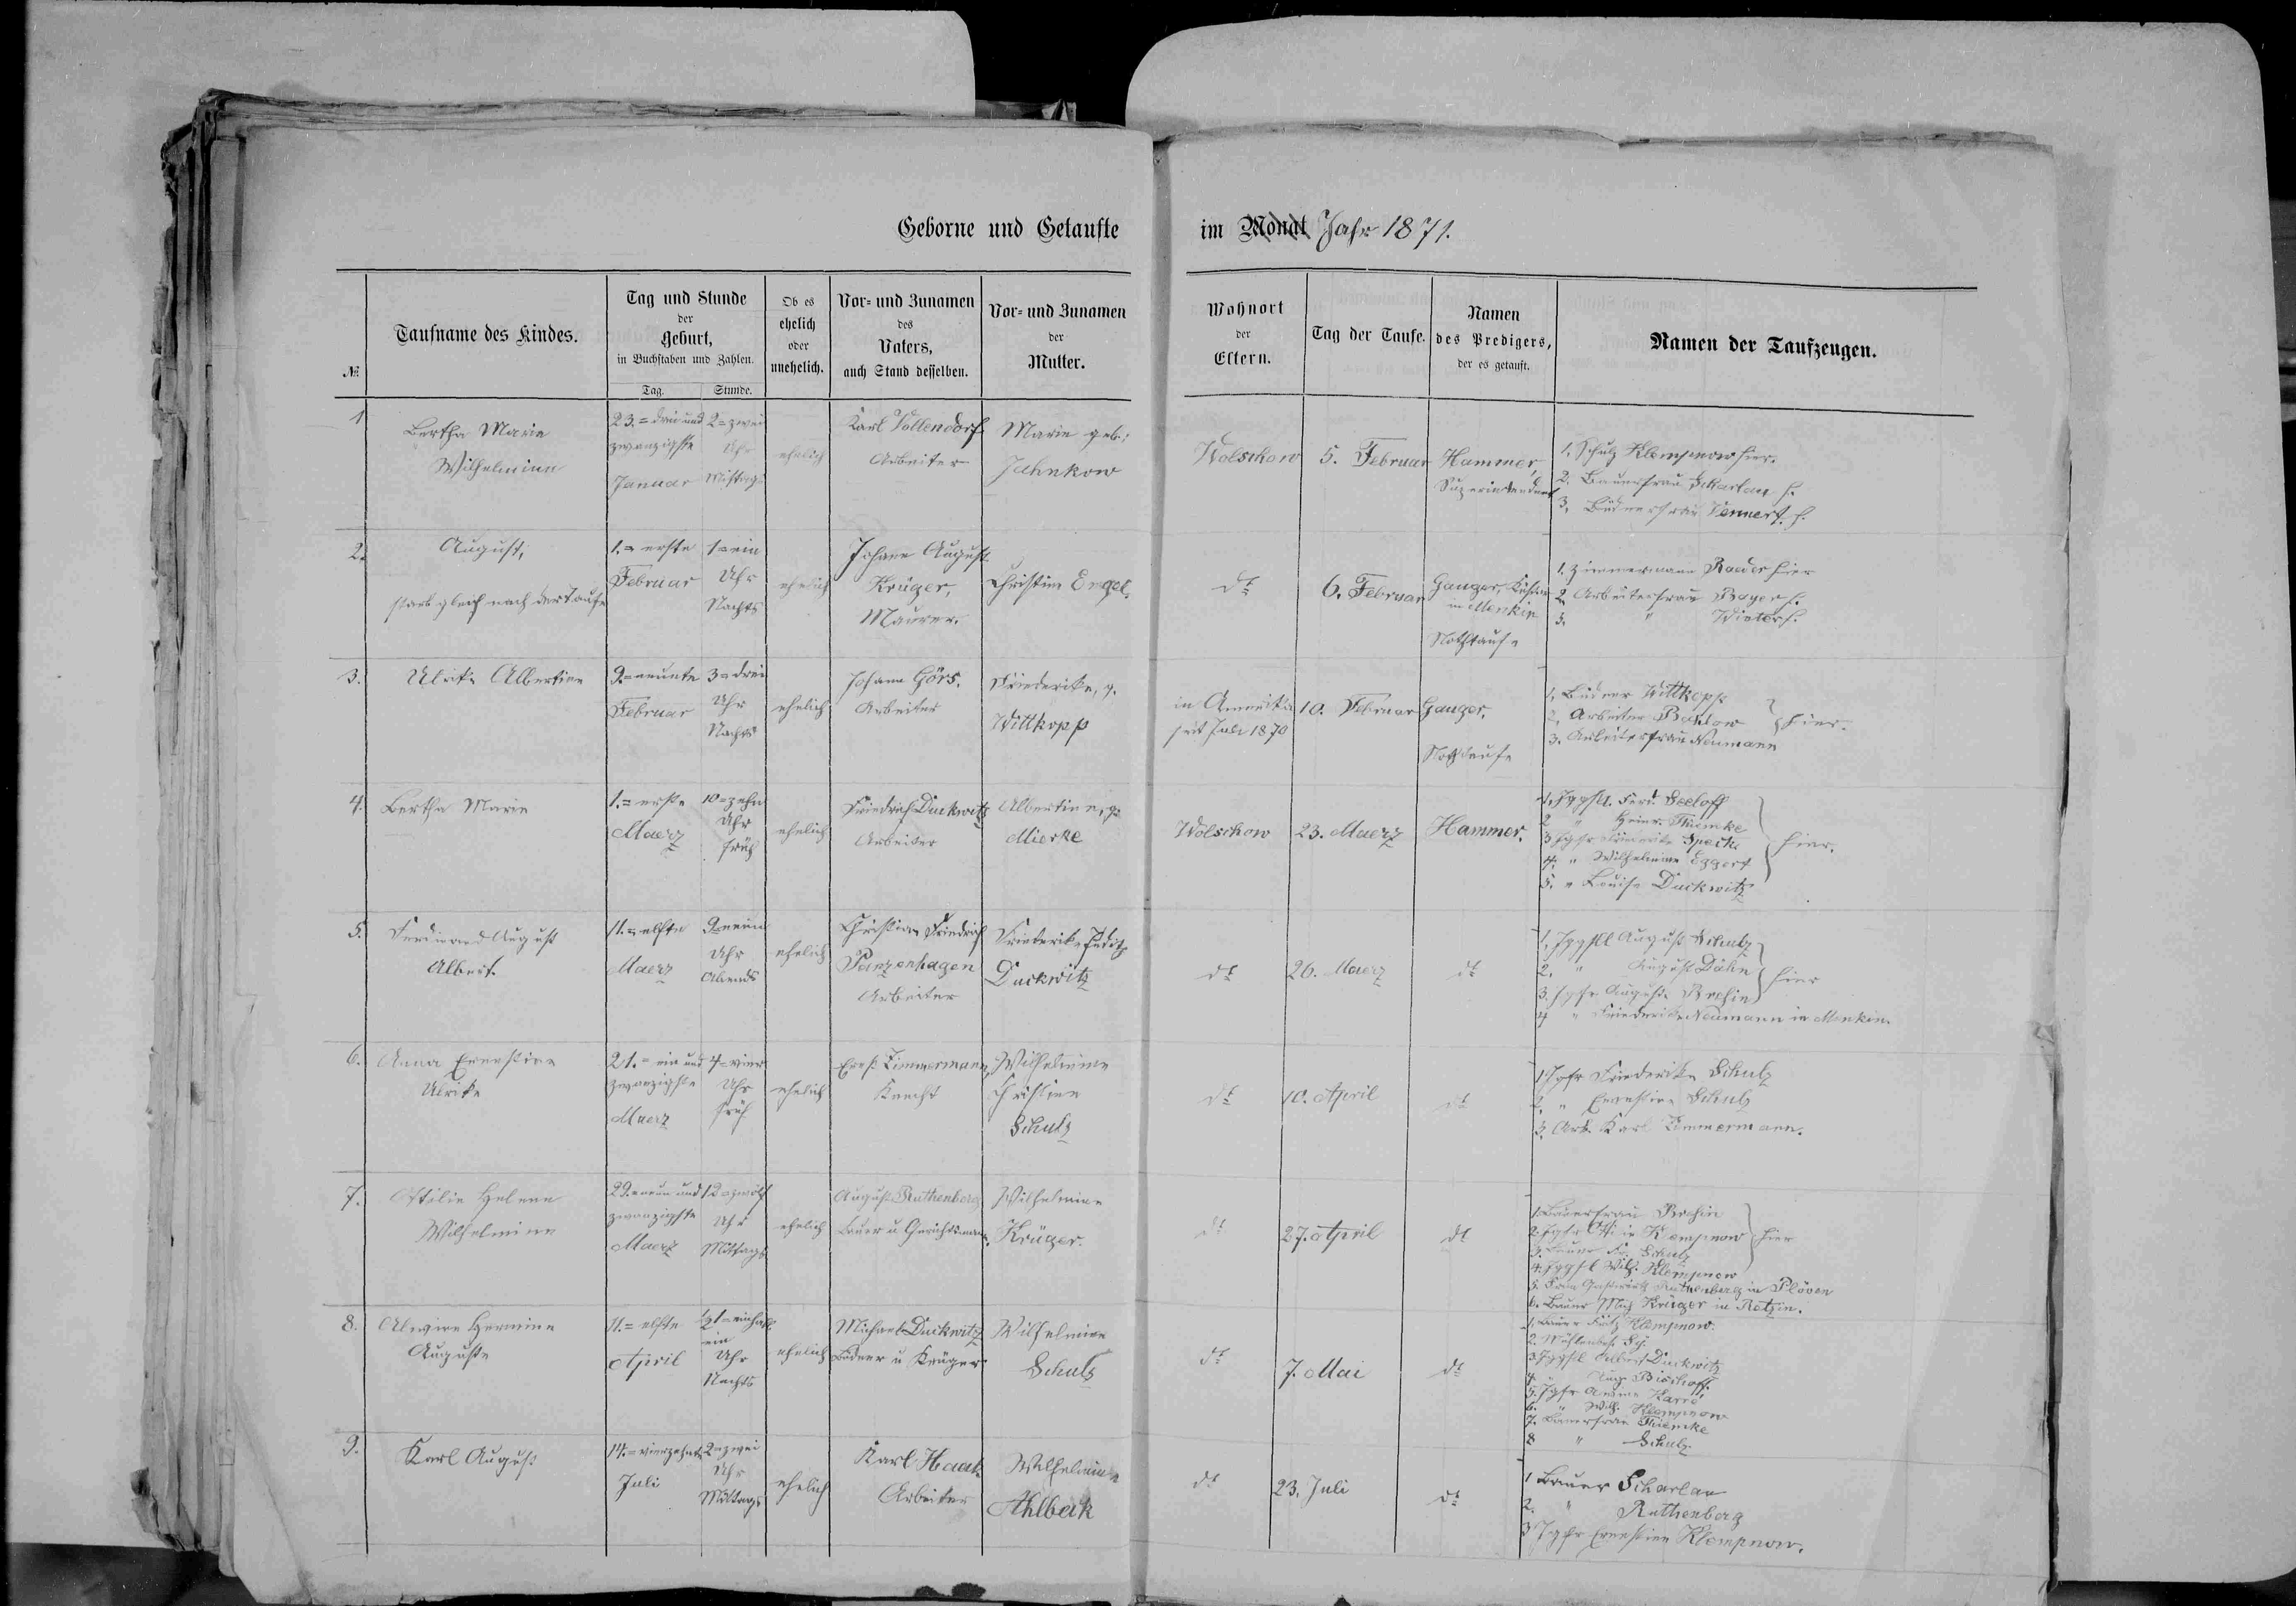 Geborne und Getaufte im Monat Jahr 1871.
№
Taufname des Kindes.
Tag und Stunde
der
Geburt,
in Buchstaben und Zahlen.
Tag. Stunde.
Ob es
ehelich
oder
unehelich.
Vor- und Zunamen
des
Vaters,
auch Stand desselben.
Vor- und Zunamen
der
Mutter.
Wohnort
der
Eltern.
Tag der Taufe.
Namen
des Predigers,
der es getauft.
Namen der Taufzeugen.
1
Bertha Marie
Wilhelmine
23.= drei und
zwanzigste
Januar
2= zwei
Uhr
Mittags
ehelich
Karl Vollendorf
Arbeiter
Marie geb:
Jahnkow
Wolschow
5. Februar
Hammer,
Superintendent
1. Schulz Klempnow hier.
2. Bauerfrau Scharlau h.
3. Büdnerfrau Vennert h.
2.
August,
starb gleich nach der Taufe
1.= erste
Februar
1= ein
Uhr
Nachts
ehelich
Johann August
Krüger,
Maurer.
Christine Engel.
dt
6. Februar
Gauger, Küster
in Menkin
Nothtaufe
1. Zimmermann Raeder hier
2. Arbeiterfrau Boyer h.
3. " Winter h.
3.
Ulrike Albertine
9.= neunte
Februar
3= drei
Uhr
Nachts
ehelich
Johann Görs.
Arbeiter
Friederike, g.
Wittkopp
in Amerika
seit Juli 1870
10. Februar
Gauger,
Nothtaufe
1. Büdner Wittkopp
2. Arbeiter
3. Arbeiterfrau Neumann
hier.
4.
Bertha Marie
1.= erste
Maerz
10= zehn
Uhr
früh
ehelich
Friedrich Duckwitz
Arbeiter
Albertine, g.
Mierke
Wolschow
23. Maerz
Hammer.
1. Jggsll. Ferd. Seeloff
2 " Heinr. Thiemke
3 Jgfr Friederike Specht
4. " Wilhelmine Eggert
5. " Louise Duckwitz
hier.
5.
Ferdinand August
Albert.
11.= elfte
Maerz
9= neun
Uhr
Abends
ehelich
Christian Friedrich
Panzenhagen
Arbeiter
Friederike Judith
Duckwitz
dt
26. Maerz
dt
1. Jggsll August Schulz
2. " August Dähn
3. Jgfr Auguste Brehin
hier
4 " Friederike Neumann in Menkin.
6.
Anna Ernestine
Ulrike
21.= ein und
zwanzigste
Maerz
4= vier
Uhr
früh
ehelich
Ernst Zimmermann,
Knecht
Wilhelmine
Christine
Schulz
dt
10. April
dt
1 Jgfr Friederike Schulz
2. " Ernestine Schulz
3. Arb. Karl Zimmermann.
7.
Ottilie Helene
Wilhelmine
29.= neun und
zwanzigste
Maerz
12= zwölf
Uhr
Mittags
ehelich
August Ruthenberg
Bauer u Gerichtsmann.
Wilhelmine
Krüger.
dt
27. April
dt
1. Bauerfrau Brehin
2. Jgfr Ottilie Klempnow
3. Bauer Fr. Schulz
4. Jggsl Wilh. Klempnow
hier
5. Frau Gastwirth Ruthenberg in Plöwen
6. Bauer Mich Krüger in Retzin.
8.
Alwine Hermine
Auguste
11.= elfte
April
½1= einhalb
ein
Uhr
Nachts
ehelich
Michael Duckwitz
Büdner u Krüger
Wilhelmine
Schulz
dt
7. Mai
dt
1. Bauer Fritz Klempnow.
2. Mühlenbes.
3. Jggsll Albert Duckwitz
4. " Aug. Bischoff.
5. Jgfr Karré
6. " Wilh. Klempnow
7. Bauerfrau Thiemke
8 " Schulz.
9.
Karl August
14.= vierzehnte
Juli
2= zwei
Uhr
Mittags
ehelich
Karl Haak
Arbeiter
Wilhelmine
Ahlbeck
dt
23. Juli
dt
1 Bauer Scharlau
2. " Ruthenberg
3 Jgfr Ernestine Klempnow.